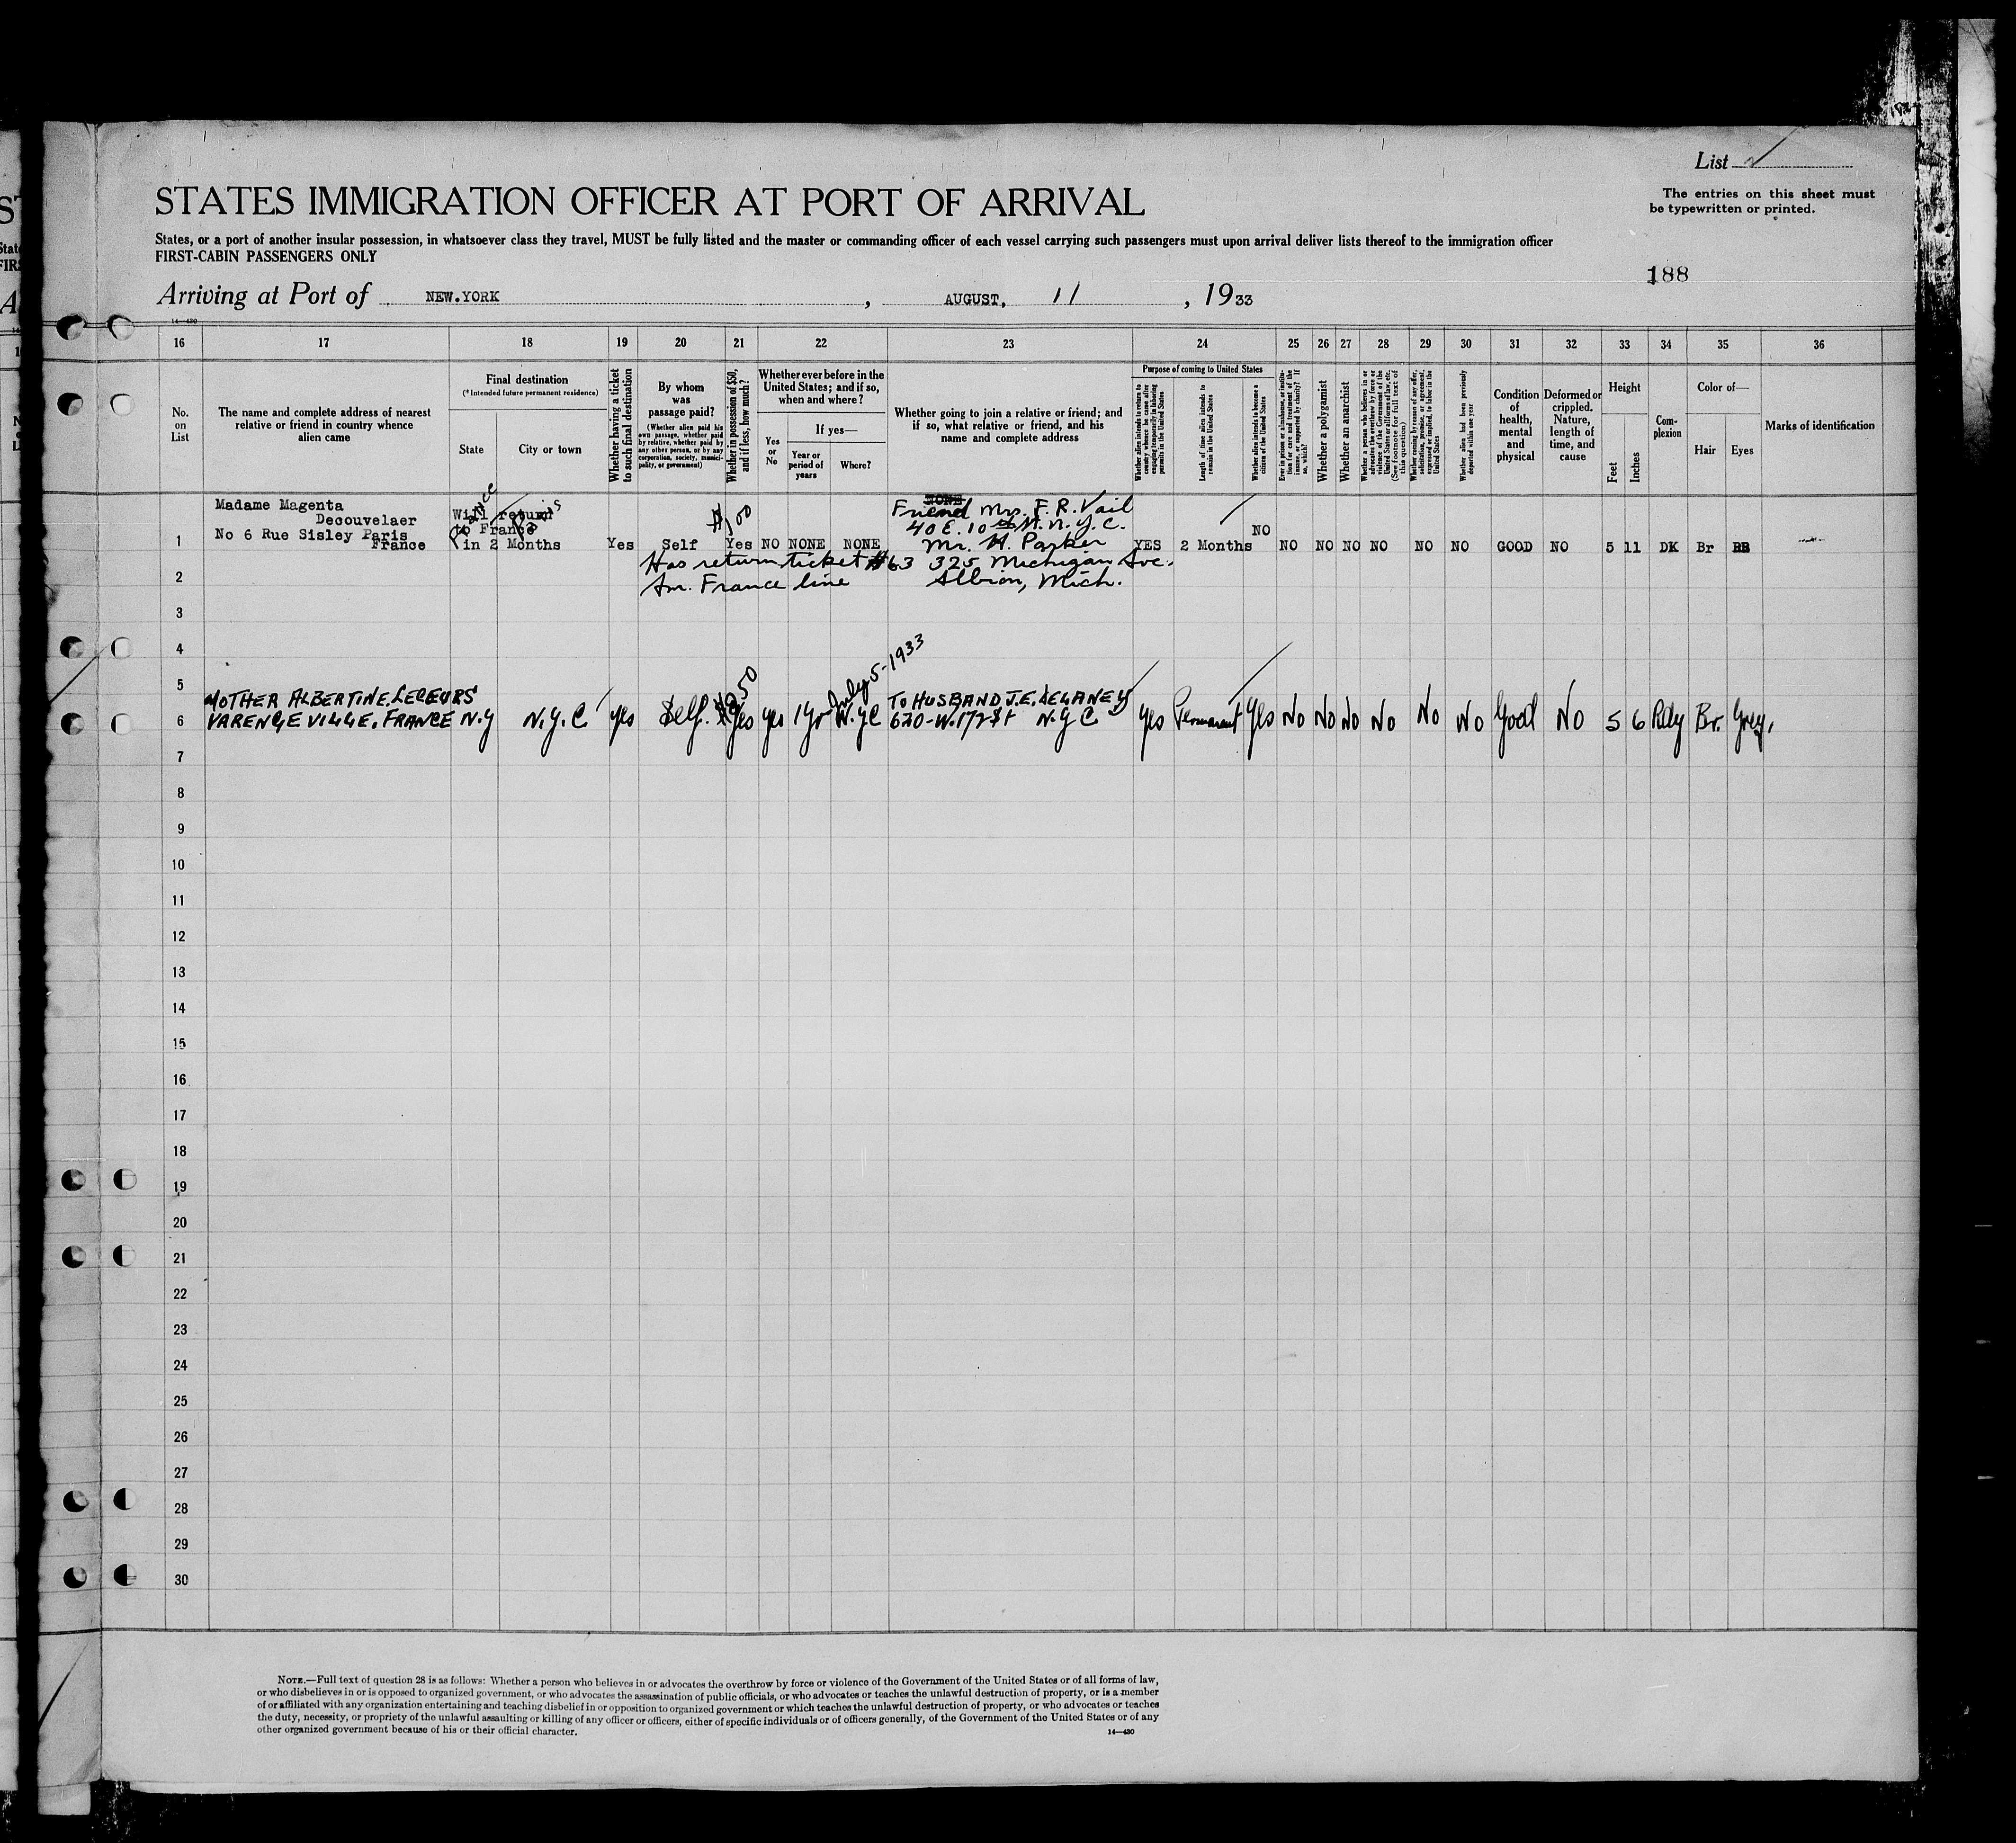 List ✓
STATES IMMIGRATION OFFICER AT PORT OF ARRIVAL
The entries on this sheet must
be typewritten or printed.
States, or a port of another insular possession, in whatsoever class they travel, MUST be fully listed and the master or commanding officer of each vessel carrying such passengers must upon arrival deliver lists thereof to the immigration officer
FIRST-CABIN PASSENGERS ONLY
188
Arriving at Port of NEW.YORK , AUGUST, 11 , 1933
14—430
16 17 18 19 20 21 22 23 24 25 26 27 28 29 30 31 32 33 34 35 36
No.
on
List
The name and complete address of nearest
relative or friend in country whence
alien came
Final destination
(*Intended future permanent residence)
State
City or town
Whether having a ticket
to such final destination
By whom
was
passage paid?
(Whether alien paid his
own passage, whether paid
by relative, whether paid by
any other person, or by any
corporation, society, munici-
pality, or government)
Whether in possession of $50,
and if less, how much?
Whether ever before in the
United States; and if so,
when and where?
Yes
or
No
If yes—
Year or
period of
years
Where?
Whether going to join a relative or friend; and
if so, what relative or friend, and his
name and complete address
Purpose of coming to United States
Whether alien intends to return to
country whence he came after
engaging temporarily in laboring
pursuits in the United States
Length of time alien intends to
remain in the United States
Whether alien intends to become a
citizen of the United States
Ever in prison or almshouse, or institu-
tion for care and treatment of the
insane, or supported by charity? If
so, which?
Whether a polygamist
Whether an anarchist
Whether a person who believes in or
advocates the overthrow by force or
violence of the Government of the
United States or all forms of law, etc.
(See footnote for full text of
this question)
Whether coming by reason of any offer,
solicitation, promise, or agreement,
expressed or implied, to labor in the
United States
Whether alien had been previously
deported within one year
Condition
of
health,
mental
and
physical
Deformed or
crippled.
Nature,
length of
time, and
cause
Height
Feet
Inches
Com-
plexion
Color of—
Hair
Eyes
Marks of identification
1
Madame Magenta
Decouvelaer
No 6 Rue Sisley Paris
France
Will return
to France
in 2 Months
France
Paris
Yes
Self
$100
Yes NO NONE NONE
NONE
Friend Mrs. F. R. Vail
40 E. 10 St. N.Y.C.
Mr. H. Parker
325 Michigan Ave.
Albion, Mich.
Has return ticket #63
Am. France line
YES 2 Months NO NO NO NO NO NO NO GOOD NO 5 11 DK Br
2
3
4
5
6
MOTHER ALBERTINE.LECEURS
VARENGEVILLE. FRANCE
N.Y N.Y.C yes Self. Yes yes 1yr N.Y.C
July 5-1933
TO HUSBAND J.E. DELANEY
620-W.172 St N.Y.C
Yes Permanent Yes No No No No No No Good No 5 6 Rdy Br. Grey.
7
8
9
10
11
12
13
14
15
16
17
18
19
20
21
22
23
24
25
26
27
28
29
30
NOTE.—Full text of question 28 is as follows: Whether a person who believes in or advocates the overthrow by force or violence of the Government of the United States or of all forms of law,
or who disbelieves in or is opposed to organized government, or who advocates the assassination of public officials, or who advocates or teaches the unlawful destruction of property, or is a member
of or affiliated with any organization entertaining and teaching disbelief in or opposition to organized government or which teaches the unlawful destruction of property, or who advocates or teaches
the duty, necessity, or propriety of the unlawful assaulting or killing of any officer or officers, either of specific individuals or of officers generally, of the Government of the United States or of any
other organized government because of his or their official character.
14—430